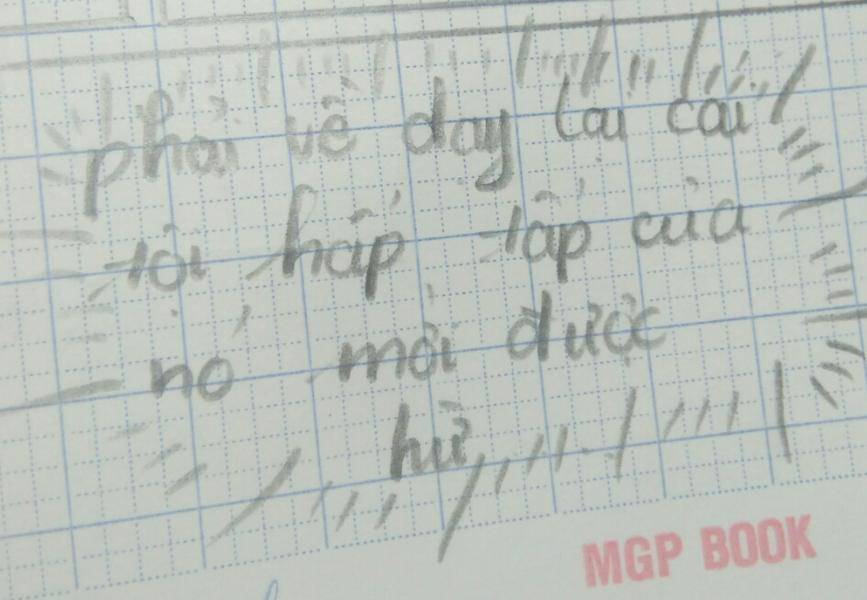 phải về dạy lại cái
tội hấp tấp của
nó mới được
hừ
MGP BOOK